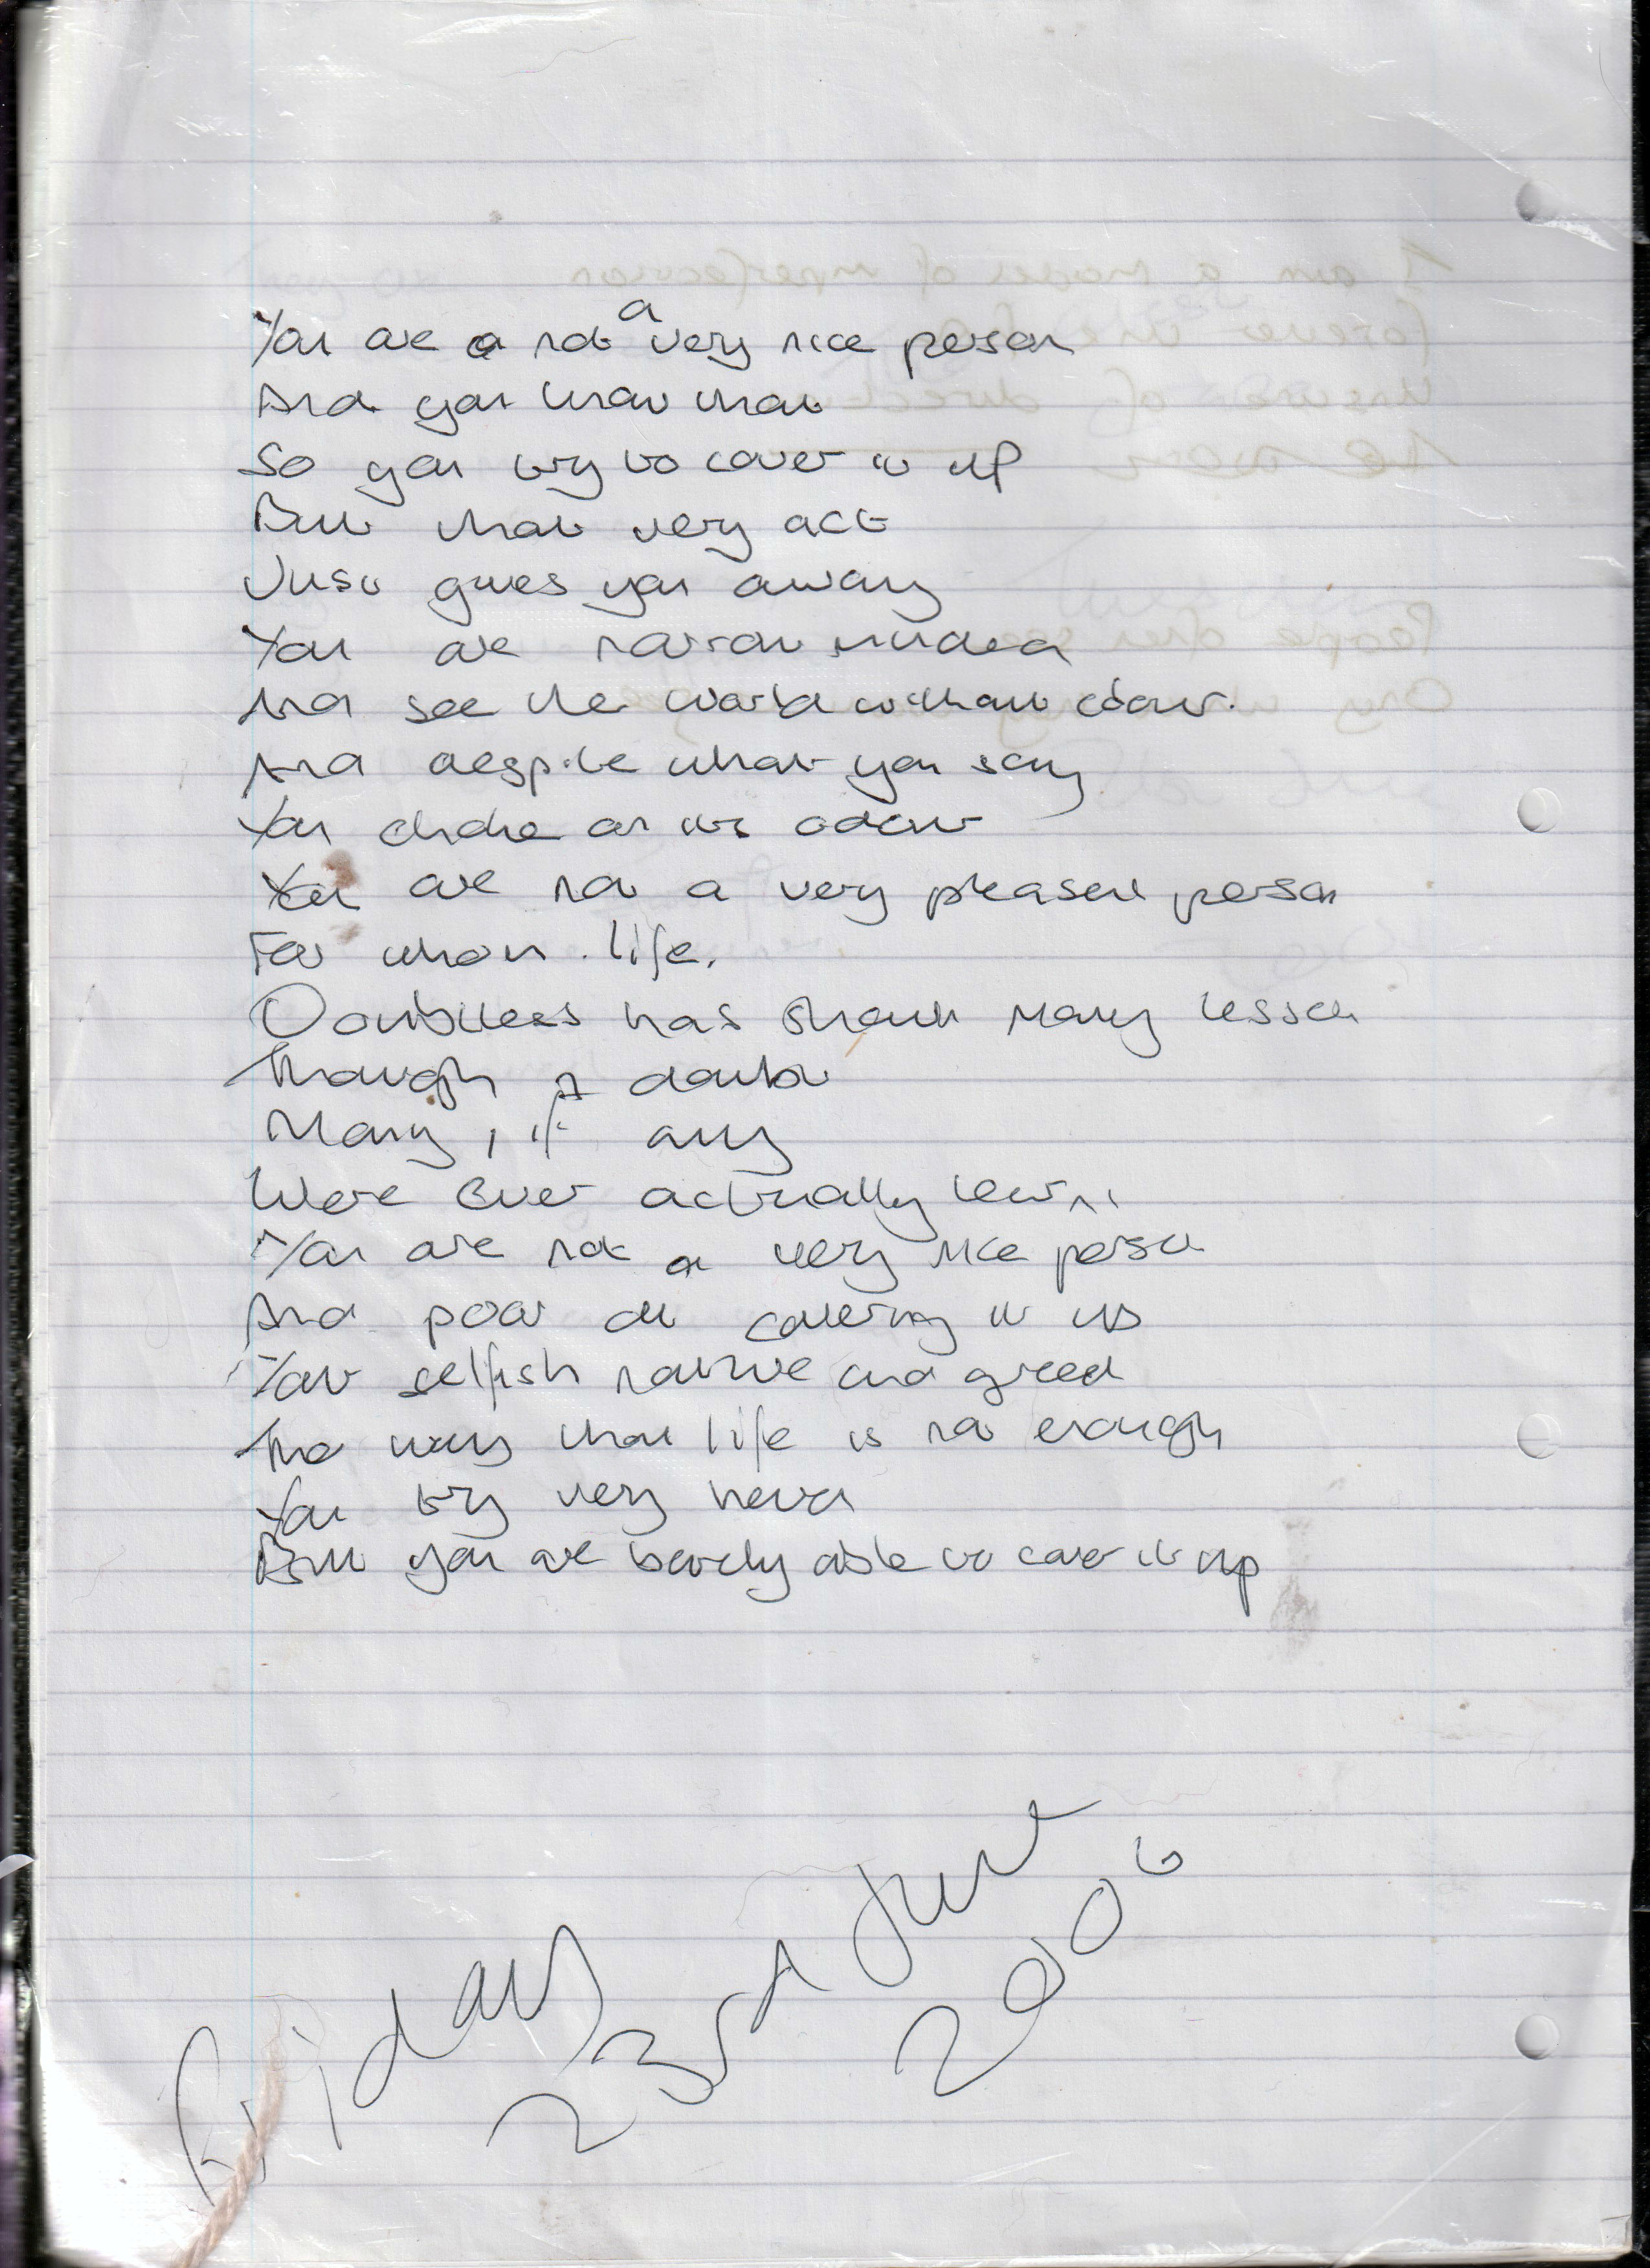 You are a not a very nice person
And you know that
So you try to cover it up
But that very act
Just gives you away
You are narrow minded
And see the world without colour.
And despite what you say
You choke on its odour
You are not a very pleasant person
For whom life.
Doubtless has shown many lesson
Though I doubt
Many, if any
Were ever actually learnt
You are not a very nice person
And poor at covering it up
Your selfish nature and greed
The way that life is not enough
You try very hard
But you are barely able to cover it up
Friday
23rd June
2006